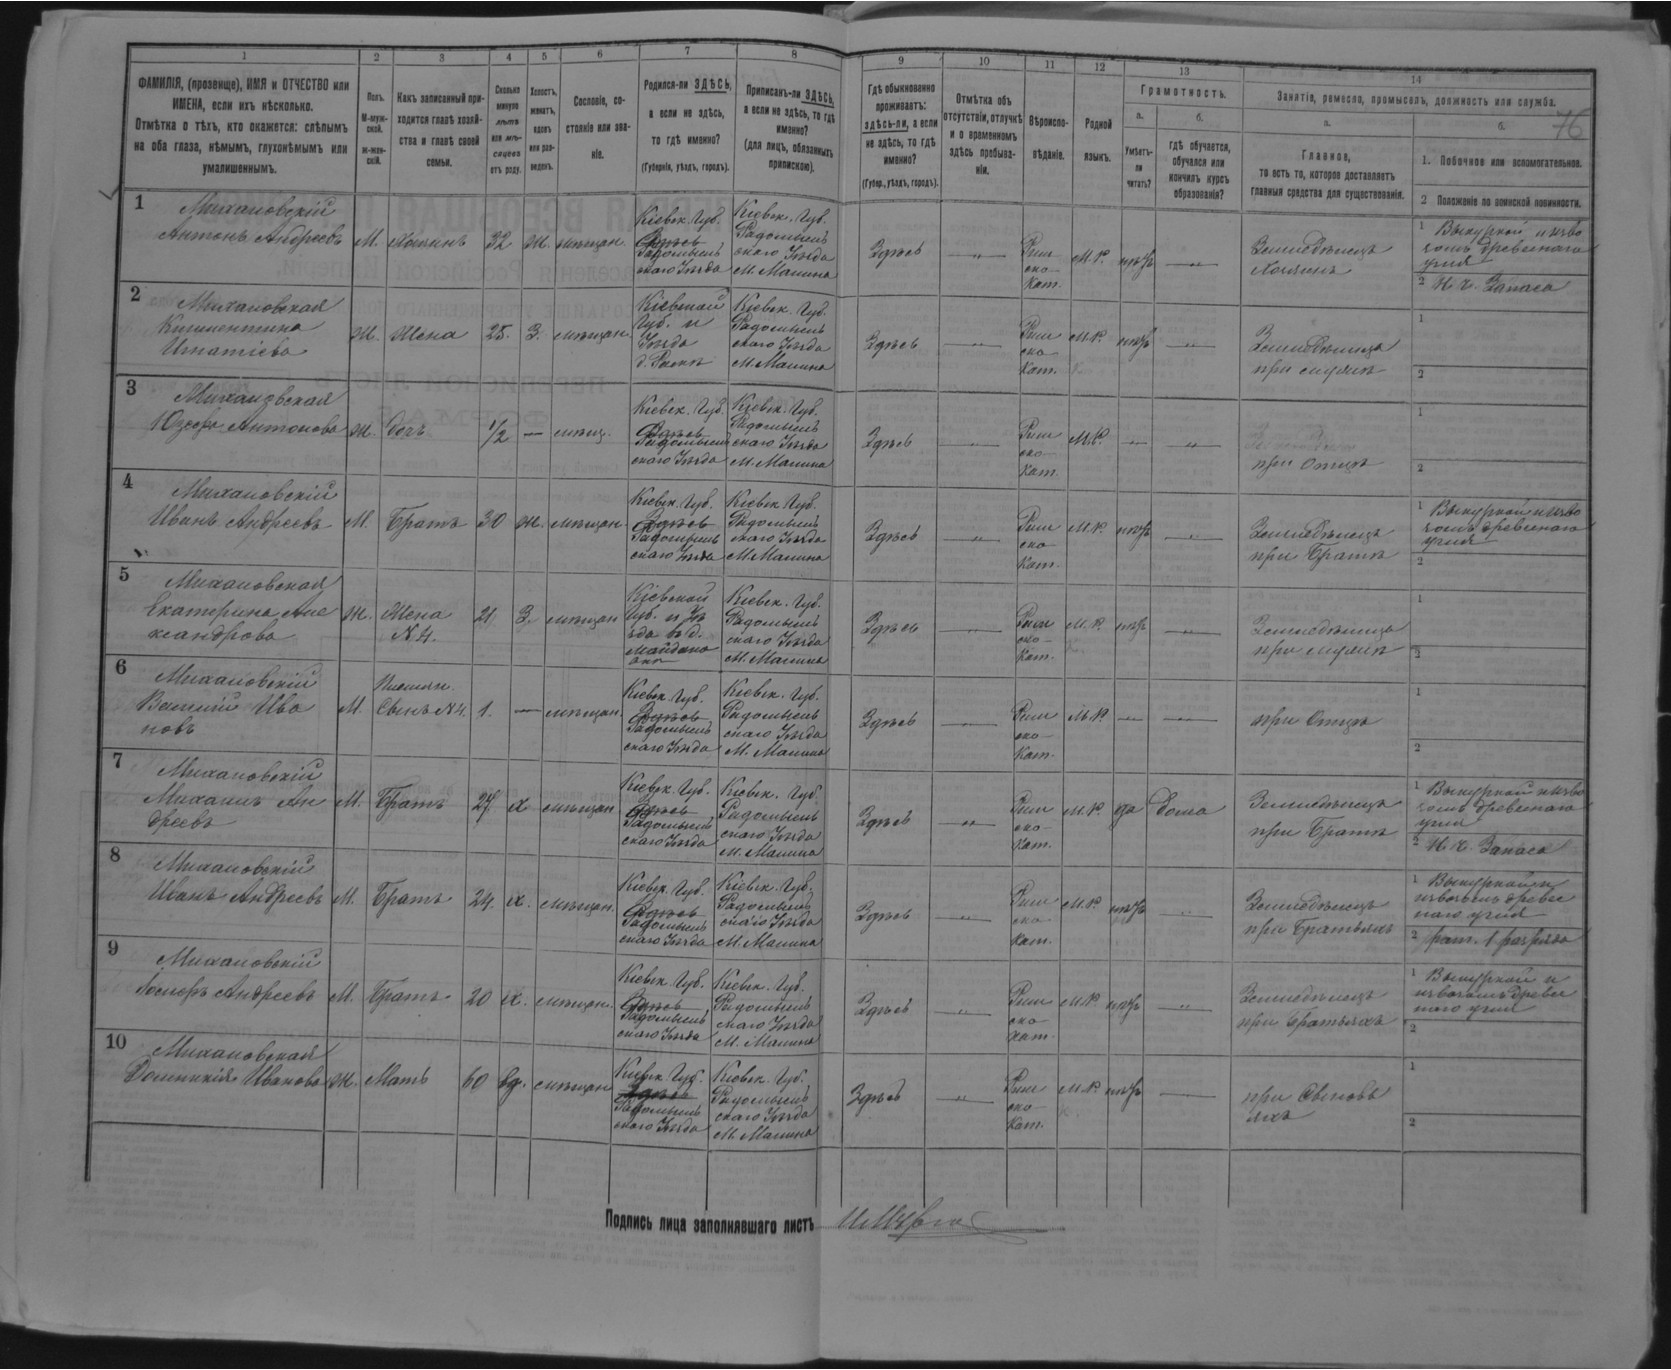 1 2 3 4 5 6 7 8 9 10 11 12 13 14
76
ФАМИЛІЯ, (прозвище), ИМЯ и ОТЧЕСТВО или
ИМЕНА, если ихъ нѣсколько.
Отмѣтка о тѣхъ, кто окажется: слѣпымъ
на оба глаза, нѣмымъ, глухонѣмымъ или
умалишеннымъ.
Полъ.
М-муж-
ской.
ж-жен-
скій.
Какъ записанный при-
ходится главѣ хозяй-
ства и главѣ своей
семьи.
Сколько
минуло
лѣтъ
или мѣ-
сяцевъ
отъ роду.
Холостъ,
женатъ,
вдовъ
или раз-
веденъ.
Сословіе, со-
стояніе или зва-
ніе.
Родился-ли ЗДѢСЬ,
а если не здѣсь,
то гдѣ именно?
(Губернія, уѣздъ, городъ).
Приписанъ-ли ЗДѢСЬ,
а если не здѣсь, то гдѣ
именно?
(для лицъ, обязанныхъ
припискою).
Гдѣ обыкновенно
проживаетъ:
здѣсь-ли, а если
не здѣсь, то гдѣ
именно?
(Губер., уѣздъ, городъ).
Отмѣтка объ
отсутствіи, отлучкѣ
и о временномъ
здѣсь пребыва-
ніи.
Вѣроиспо-
вѣданіе.
Родной
языкъ.
Грамотность.
а.
Умѣетъ-
ли
читать?
б.
Гдѣ обучается,
обучался или
кончилъ курсъ
образованія?
Занятіе, ремесло, промыселъ, должность или служба.
а.
Главное,
то есть то, которое доставляетъ
главныя средства для существованія.
б.
1. Побочное или вспомогательное.
2 Положеніе по воинской повинности.
1
Михановскій
Антонъ Андреевъ
М. Хозяинъ 32 ж. мѣщан.
Кіевск. Губ.
Здѣсь
Радомысль
скаго Уѣзда
Кіевск. Губ.
Радомысль
скаго Уѣзда
М. Малина
Здѣсь
Рим
ско-
Кат.
М.Р. нѣтъ
Земледѣлецъ
Хозяинъ
1 Выкуркой и изво
зомъ древеснаго
угля
2 Н. ч. Запаса
2
Михановская
Клементина
Игнатіева
Ж. Жена 25. З. мѣщан.
Кіевской
Губ. и
Уѣзда
Кіевск. Губ.
Радомысль
скаго Уѣзда
М. Малина
Здѣсь
Рим
ско-
Кат.
М.Р. нѣтъ
Земледѣлица
при мужѣ
1
2
3
Михановская
Юзефа Антонова
Ж. Дочь 1/2 — мѣщ.
Кіевск. Губ.
Здѣсь
Радомысль
скаго Уѣзда
Кіевск. Губ.
Радомысль
скаго Уѣзда
М. Малина
Здѣсь
Рим
ско-
Кат.
М.Р. —
при Отцѣ
1
2
4
Михановскій
Иванъ Андреевъ
М. Братъ 30 ж. мѣщан.
Кіевск. Губ.
Здѣсь
Радомысль
скаго Уѣзда
Кіевск. Губ.
Радомысль
скаго Уѣзда
М. Малина
Здѣсь
Рим
ско-
Кат.
М.Р. нѣтъ
Земледѣлецъ
при Братѣ
1 Выкуркой и изво
зомъ древеснаго
угля
2
5
Михановская
Екатерина Але
ксандрова
Ж. Жена
N 4.
21 З. мѣщан
Кіевской
Губ. и Уѣ
зда
Кіевск. Губ.
Радомысль
скаго Уѣзда
М. Малина
Здѣсь
Рим
ско-
Кат.
М.Р. нѣтъ
Земледѣлица
при мужѣ
1
2
6
Михановскій
Василій Ива
новъ
М. Сынъ N 4. 1. — мѣщан.
Кіевск. Губ.
Здѣсь
Радомысль
скаго Уѣзда
Кіевск. Губ.
Радомысль
скаго Уѣзда
М. Малина
Здѣсь
Рим
ско-
Кат.
М.Р. —
при Отцѣ
1
2
7
Михановскій
Михаилъ Ан
дреевъ
М. Братъ 27 х мѣщан
Кіевск. Губ.
Здѣсь
Радомысль
скаго Уѣзда
Кіевск. Губ.
Радомысль
скаго Уѣзда
М. Малина
Здѣсь
Рим
ско-
Кат.
М.Р. да дома
Земледѣлецъ
при Братѣ
1 Выкуркой и изво
зомъ древеснаго
угля
2 Н. ч. Запаса
8
Михановскій
Иванъ Андреевъ
М. Братъ 24. х. мѣщан.
Кіевск. Губ.
Здѣсь
Радомысль
скаго Уѣзда
Кіевск. Губ.
Радомысль
скаго Уѣзда
М. Малина
Здѣсь
Рим
ско-
Кат.
М.Р. нѣтъ
Земледѣлецъ
при Братьяхъ
1 Выкуркой и
извозомъ древес
наго угля
2 рат. 1 разряда
9
Михановскій
Іосифъ Андреевъ
М. Братъ 20 х. мѣщан.
Кіевск. Губ.
Здѣсь
Радомысль
скаго Уѣзда
Кіевск. Губ.
Радомысль
скаго Уѣзда
М. Малина
Здѣсь
Рим
ско-
Кат.
М.Р. нѣтъ
Земледѣлецъ
при Братьяхъ
1 Выкуркой и
извозомъ древес
наго угля
2
10
Михановская
Доминикія Иванова
Ж. Мать 60 вд. мѣщан
Кіевск. Губ.
Здѣсь
Радомысль
скаго Уѣзда
Кіевск. Губ.
Радомысль
скаго Уѣзда
М. Малина
Здѣсь
Рим
ско-
Кат.
М.Р. нѣтъ
при Сыновь
яхъ
1
2
Подпись лица заполнявшаго листъ